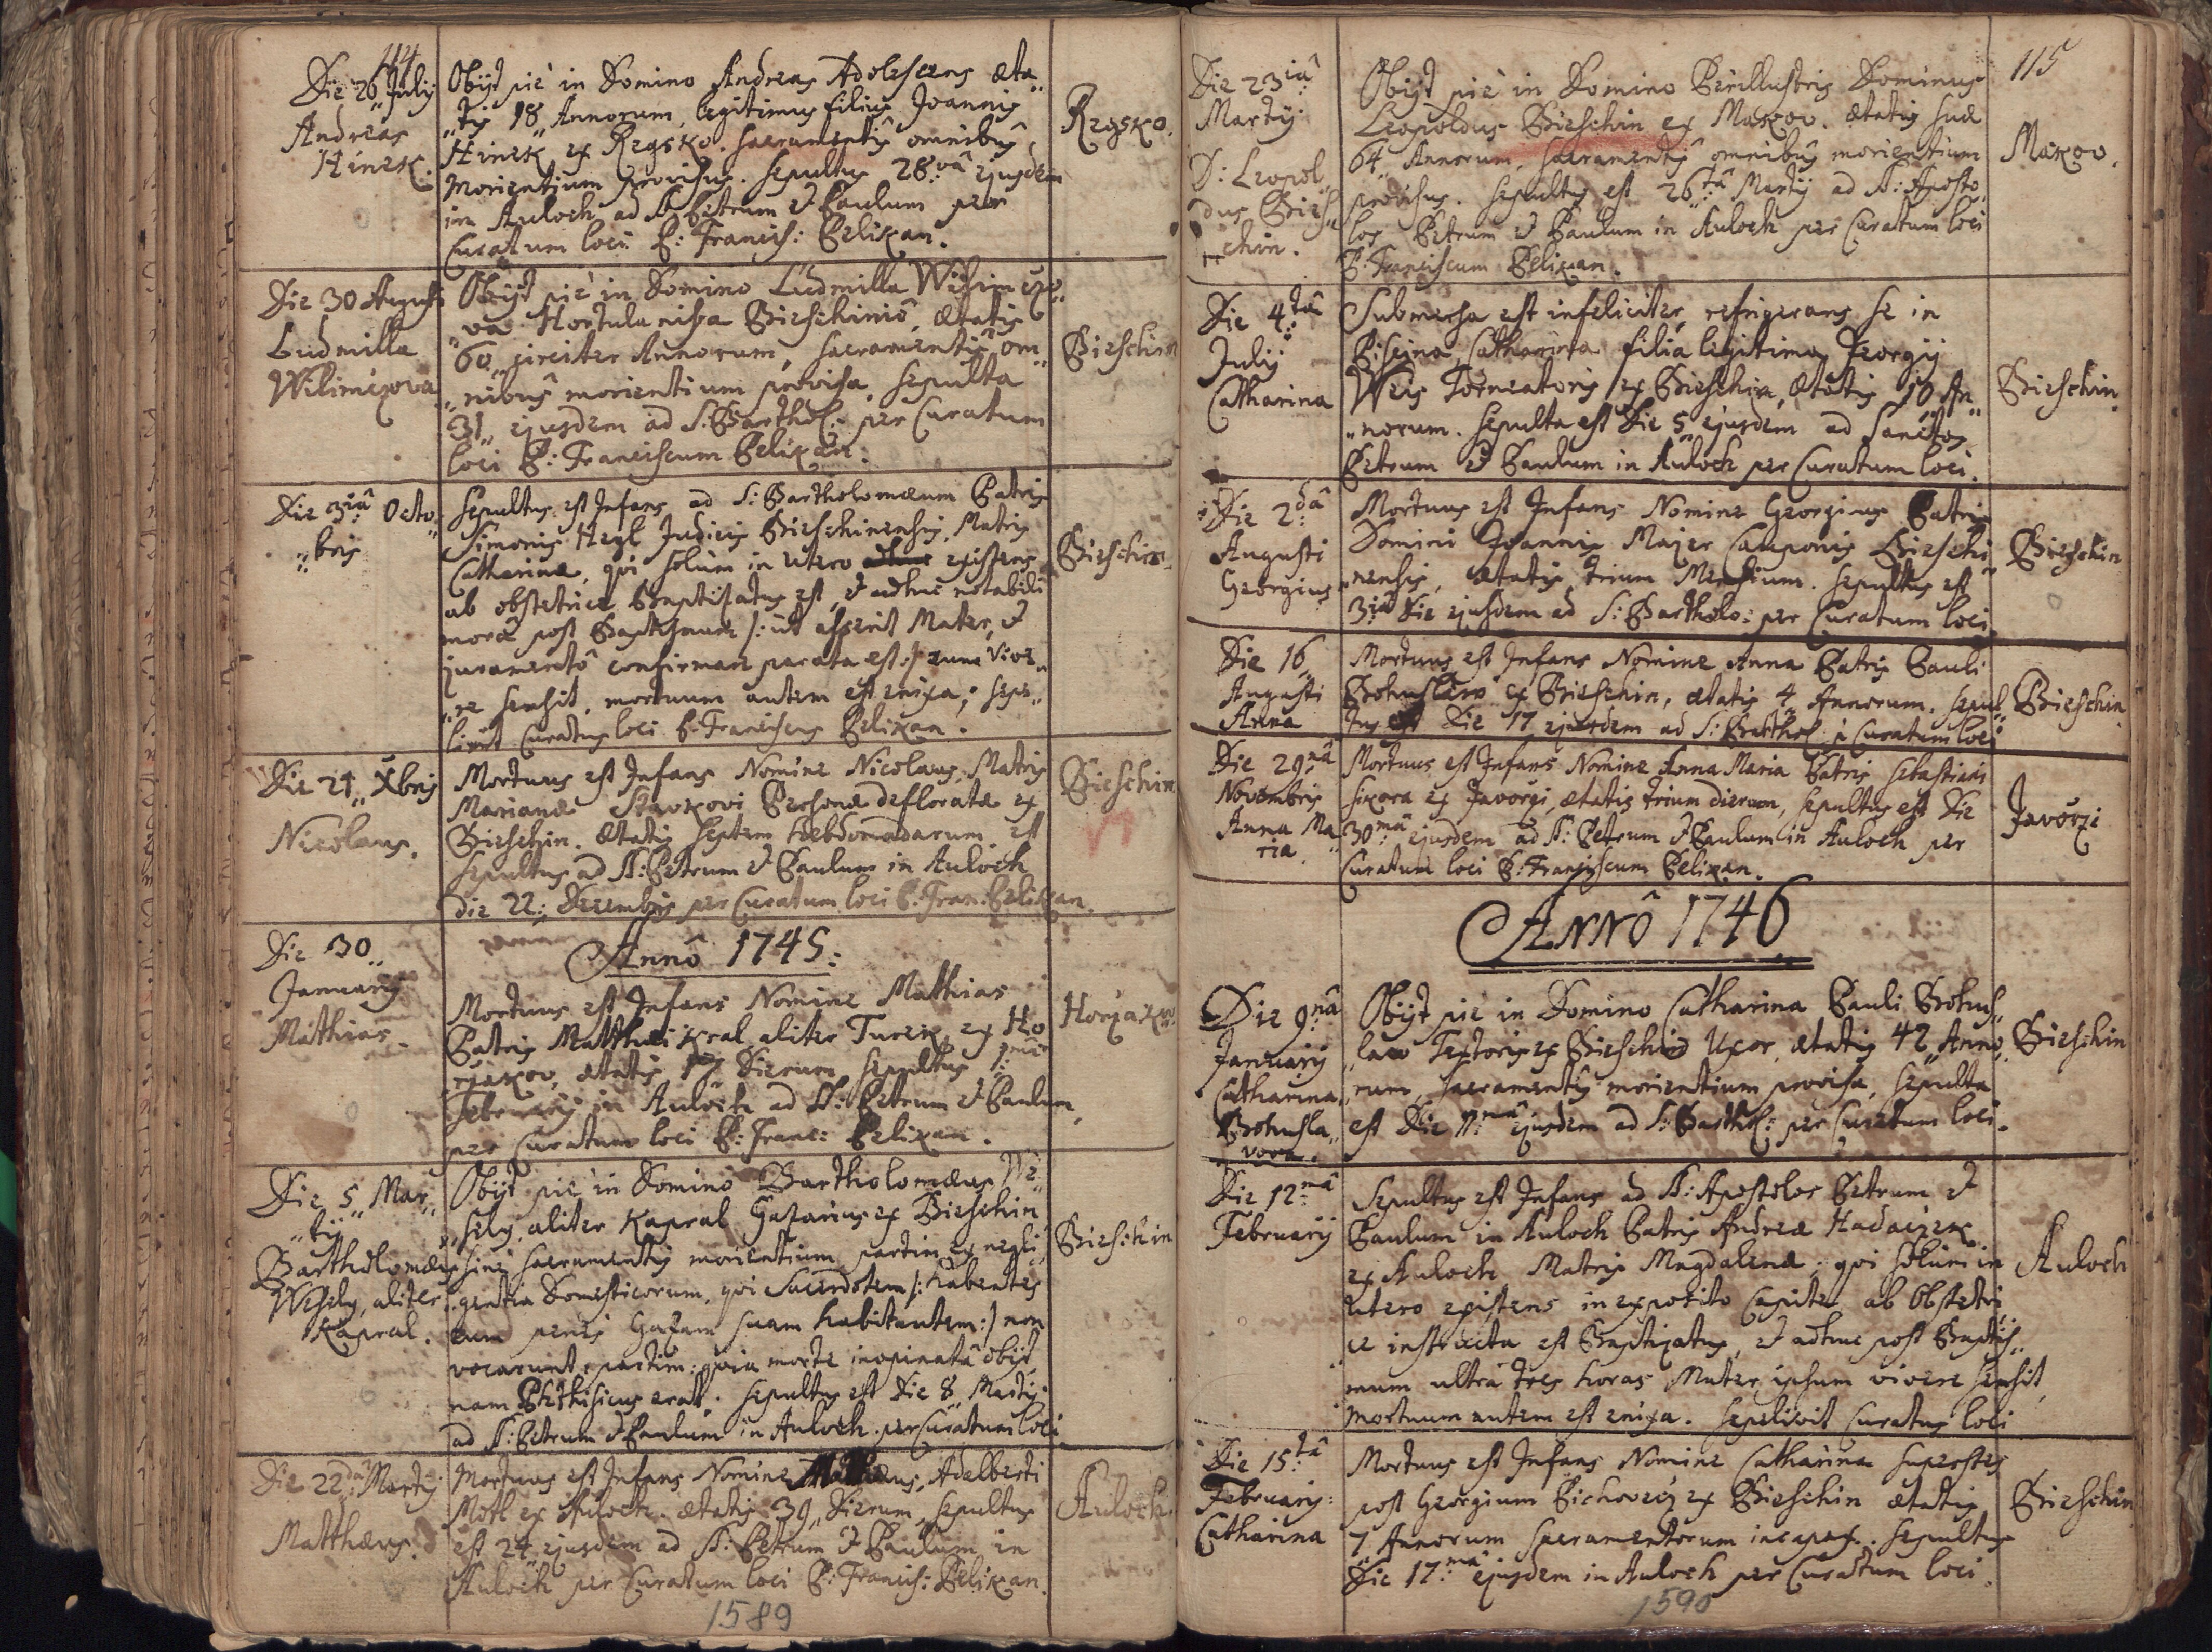 114
Die 26 July
Andreas
Hinek.
Obijt piè in Domino Andreas Adolescens æta„
„tis 18 Annorum, legitimus filius Joannis
Hinek ex Regsko. Sacramentis omnibus
morientium provisus. Sepultus 28.vâ ejusdem
in Auloch ad SS. Petrum et Paulum per
Curatum loci P: Francis: Pelikan.
Regsko.
Die 30 Augusti
Ludmilla
Wilimczova
Obijt piè in Domino Ludmilla Wilimczo„
„va Hortulanissa Bieschinio, ætatis
60 circiter Annorum, sacramentis om„
„nibus morientium provisa, sepulta
31„ ejusdem ad S: Barthol: per Curatum
loci P: Franciscum Pelikan.
Bieschin
Die 3iâ Octo„
„bris
Sepultus est Infans ad S: Bartholomæum Patris
Simonis Hegl Judicis Bieschinensis, Matris
Catharinæ, qvi solùm in utero existens
ab obstetrice Baptisatus est, et adhuc notabili
morâ post Baptismum /: ùt asserit Mater, et
juramentô confirmare parata est :/ eum vive„
„re sensit, mortuum autem est enixa; sepe„
livit Curatus loci P: Franciscus Pelikan.
Bieschin.
Die 21„ Xbris
Nicolaus.
Mortuus est Infans Nomine Nicolaus, Matris
Marianæ Slavkovi Personæ defloratæ ex
Bieschin. Ætatis septem hebdomadarum est
sepultus ad SS: Petrum et Paulum in Auloch
die 22: Decembris per Curatum loci P: Fran: Pelikan.
Bieschin
Annô 1745:
Die 30„
January
Mathias.
Mortuus est Infans Nomine Mathias
Patris Matthæi Kral aliter Turek, ex Ho
rzakov, ætatis 17 Dierum sepultus 1:mâ
February in Auloch ad SS: Petrum et Paulum
per Curatum loci P: Franc: Pelikan.
Horzakov
Die 5„ Mar„
„tij
Bartholomæus
Wesely, aliter
Kapral.
Obijt piè in Domino Bartholomæus We„
„sely, aliter Kapral Gazarius ex Bieschin
sine sacramentis morientium partim ex negli„
„gentia Domesticorum, qvi Sacerdotem /: habentes
eum penes Gazam suam habitantem :/ non
vocarunt, partim: qvia morte inopinatâ obijt,
nam Phthisicus erat. Sepultus est Die 8„ Martij
ad SS: Petrum et Paulum in Auloch. per Curatum loci
Bieschin
Die 22dâ Martij
Matthæus.
Mortuus est Infans Nomine Matthæus, Adalberti
Motl ex Auloch. ætatis 39„ Dierum, sepultus
est 24 ejusdem ad SS: Petrum et Paulum in
Auloch per Curatum loci P: Francis: Pelikan.
Auloch.
1589
115
Die 23iâ
Martij
D: Leopol„
dus Bies„
chin.
Obijt piè in Domino Perillustris Dominus
Leopoldus Bieschin ex Makov. ætatis suæ
64 Annorum, sacramentis omnibus morientium
provisus. Sepultus est 26tâ Martij ad SS: Aposto„
los Petrum et Paulum in Auloch per Curatum loci
P: Franciscum Pelikan.
Makov.
Die 4tâ
Julij
Catharina
Submersa est infeliciter, refrigerans se in
Piscina, Catharina filia legitima Georgij
Weis Torneatoris ex Bieschin, ætatis 10 An„
„norum. Sepulta est Die 5 ejusdem ad Sanctos
Petrum et Paulum in Auloch per Curatum loci.
Bieschin.
Die 2dâ
Augusti
Georgius
Mortuus est Infans Nomine Georgius Patris
Domini Joannis Majer Cauponis Bieschi„
„nensis, ætatis trium Mensium. Sepultus est
3iâ Die ejusdem ad S: Bartholo: per Curatum loci
Bieschin
Die 16„
Augusti
Anna
Mortuus est Infans Nomine Anna Patris Pauli
Bohuslaw ex Bieschin, ætatis 4„ Annorum. Sepul„
tus est Die 17 ejusdem ad S: Barthol: p Curatum loci
Bieschin.
Die 29nâ
Novembris
Anna Ma„
ria.
Mortuus est Infans Nomine Anna Maria Patris Sebastiani
Sikora ex Javorzi, ætatis trium dierum, sepultus est Die
30mâ ejusdem ad SS: Petrum et Paulum in Auloch per
Curatum loci P: Franciscum Pelikan.
Javorzi
Annô 1746
Die 9nâ
January
Catharina
Bohusla„
vova.
Obijt piè in Domino Catharina Pauli Bohus„
„law Textoris ex Bieschin Uxor, ætatis 42„ Anno„
rum, sacramentis morientium provisa, sepulta
est Die 11mâ ejusdem ad S: Barthol: per Curatum loci.
Bieschin
Die 12mâ
February
Sepultus est Infans ad SS: Apostolos Petrum et
Paulum in Auloch Patris Andreæ Hadaczek
ex Auloch Matris Magdalenæ. qvi solùm in
utero existens in exposito Capite ab Obstetri„
ce instructa est Baptizatus, et adhuc post Baptis„
mum ultrà tres horas Mater ipsum vivere sensit
mortuum autem est enixa. Sepelivit Curatus loci
Auloch
Die 15tâ
February:
Catharina
Mortuus est Infans Nomine Catharina superstes
post Georgium Pichovecz ex Bieschin ætatis
7 Annorum sacramentorum incapax. Sepultus
Die 17mâ ejusdem in Auloch per Curatum loci.
Bieschin
1590